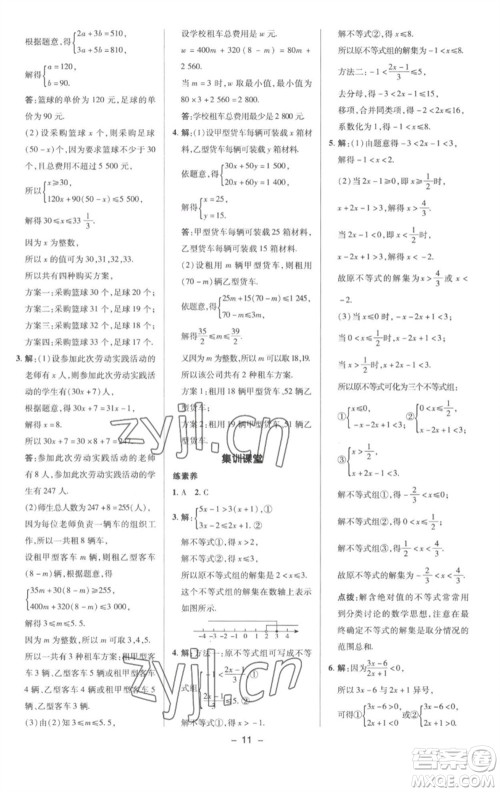 根据题意,得{2a+3b=510,
3a+5b=810.
解得{a=120,
b=90.
答:篮球的单价为 120 元,足球的单价为 90 元.
(2)设采购篮球 x 个,则采购足球为(50-x)个,因为要求篮球不少于 30 个,且总费用不超过 5 500 元,
所以{x≥30,
120x+90(50-x)≤5 500.
解得 30≤x≤33 1/3.
因为 x 为整数,
所以 x 的值可为 30,31,32,33.
所以共有四种购买方案,
方案一:采购篮球 30 个,足球 20 个;
方案二:采购篮球 31 个,足球 19 个;
方案三:采购篮球 32 个,足球 18 个;
方案四:采购篮球 33 个,足球 17 个.
3. 解:(1)设参加此次劳动实践活动的老师有 x 人,则参加此次劳动实践活动的学生有(30x+7)人,
根据题意,得
30x+7=31x-1,
解得 x=8,
所以 30x+7=30×8+7=247.
答:参加此次劳动实践活动的老师有 8 人,参加此次劳动实践活动的学生有 247 人.
(2)师生总人数为 247+8=255(人),
因为每位老师负责一辆车的组织工作,
所以一共租 8 辆车,
设租甲型客车 m 辆,则租乙型客车(8-m)辆,根据题意,得
{35m+30(8-m)≥255,
400m+320(8-m)≤3 000.
解得 3≤m≤5.5.
因为 m 为整数,所以 m 可取 3,4,5.
所以一共有 3 种租车方案:租甲型客车 3 辆,租乙型客车 5 辆或租甲型客车 4 辆,租乙型客车 4 辆或租甲型客车 5 辆,租乙型客车 3 辆.
(3)由(2)知:3≤m≤5.5,
设学校租车总费用是 w 元.
w=400m+320(8-m)=80m+2 560.
当 m=3 时,w 取最小值,最小值为 80×3+2 560=2 800.
答:学校租车总费用最少是 2 800 元.
4. 解:(1)设甲型货车每辆可装载 x 箱材料,乙型货车每辆可装载 y 箱材料,
依题意,得{30x+50y=1 500,
20x+60y=1 400.
解得{x=25,
y=15.
答:甲型货车每辆可装载 25 箱材料,乙型货车每辆可装载 15 箱材料.
(2)设租用 m 辆甲型货车,则租用(70-m)辆乙型货车,
依题意,得{25m+15(70-m)≤1 245,
70-m≤3m.
解得 35/2≤m≤39/2.
又因为 m 为整数,所以 m 可取 18,19.
所以该公司共有 2 种租车方案,
方案 1:租用 18 辆甲型货车,52 辆乙型货车;
方案 2:租用 19 辆甲型货车,51 辆乙型货车.
集训课堂
练素养
1. A 2. C
3. 解:{5x-1>3(x+1),①
3x-2≤2x+1.②
解不等式①,得 x>2.
解不等式②,得 x≤3.
所以原不等式组的解集为 2<x≤3.
这个不等式组的解集在数轴上表示如图所示.
-4 -3 -2 -1 0 1 2 3 4
4. 解:方法一:原不等式组可写成不等式组
解不等式①,得 x>-1.
解不等式②,得 x≤8.
所以原不等式组的解集为 -1<x≤8.
方法二:-1<(2x-1)/3≤5,
去分母,得 -3<2x-1≤15,
移项,合并同类项,得 -2<2x≤16,
系数化为 1,得 -1<x≤8.
5. 解:(1)由题意得 -3<2x-1<3,
解得 -1<x<2.
(2)当 2x-1≥0,即 x≥1/2 时,
x+2x-1>3,解得 x>4/3;
当 2x-1<0,即 x<1/2 时,
x-2x+1>3,解得 x<-2.
故原不等式的解集为 x>4/3 或 x<-2.
所以原不等式可化为三个不等式组:
解不等式组①,得 -2/3<x<0;
解不等式组②,得 0≤x<1/2;
解不等式组③,得 1/2≤x<4/3.
故原不等式的解集为 -2/3<x<4/3.
点拨:解含绝对值的不等式常常用到分类讨论的数学思想,注意在最终确定不等式的解集是取分情况的范围总和.
6. 解:因为(3x-6)/(2x+1)<0,
所以 3x-6 与 2x+1 异号,
可得①{3x-6>0,
2x+1<0
或②{3x-6<0,
2x+1>0.
- 11 -
zyjl.cn
zyjl.cn
答案圈
MXQE.COM